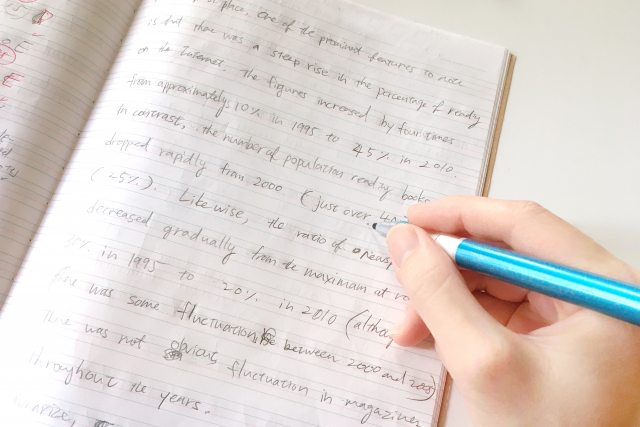 place, one of the prominent features to note
is that there was a steep rise in the percentage of reading
on the Internet. The figures increased by four times
from approximately 10% in 1995 to 45% in 2010.
In contrast, the number of population reading books
dropped rapidly from 2000 (just over
(25%). Likewise, the ratio of
decreased gradually from the maximam at
in 1995 to 20% in 2010 (
There was some fluctuation between 2000 and 2005)
There was not obvious fluctuation in magazines
throughout the years.